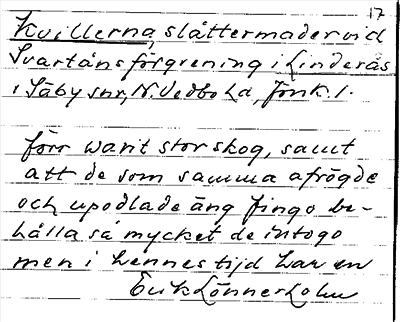 17
Kvillerna, slåttermader vid
Svartåns förgrening i Linderås
i Säby snr, N. Vedbo hd, Jönk. l.
förr warit stor skog, samt
att de som samma afrögde
och upodlade äng fingo be-
hålla så mycket de intogo
men i hennes tijd har en
Erik Lönnerholm